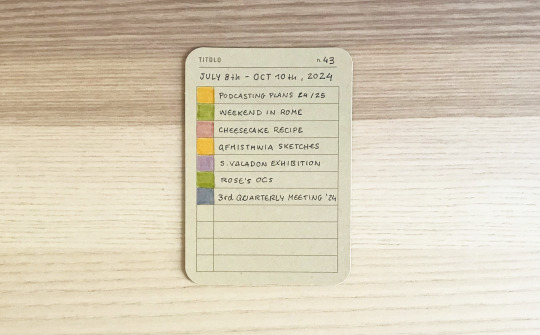 TITOLO n. 43
JULY 8th - OCT 10th, 2024
PODCASTING PLANS 24/25
WEEKEND IN ROME
CHEESECAKE RECIPE
QFMISTHWIA SKETCHES
S. VALADON EXHIBITION
ROSE'S OCS
3rd QUARTERLY MEETING '24